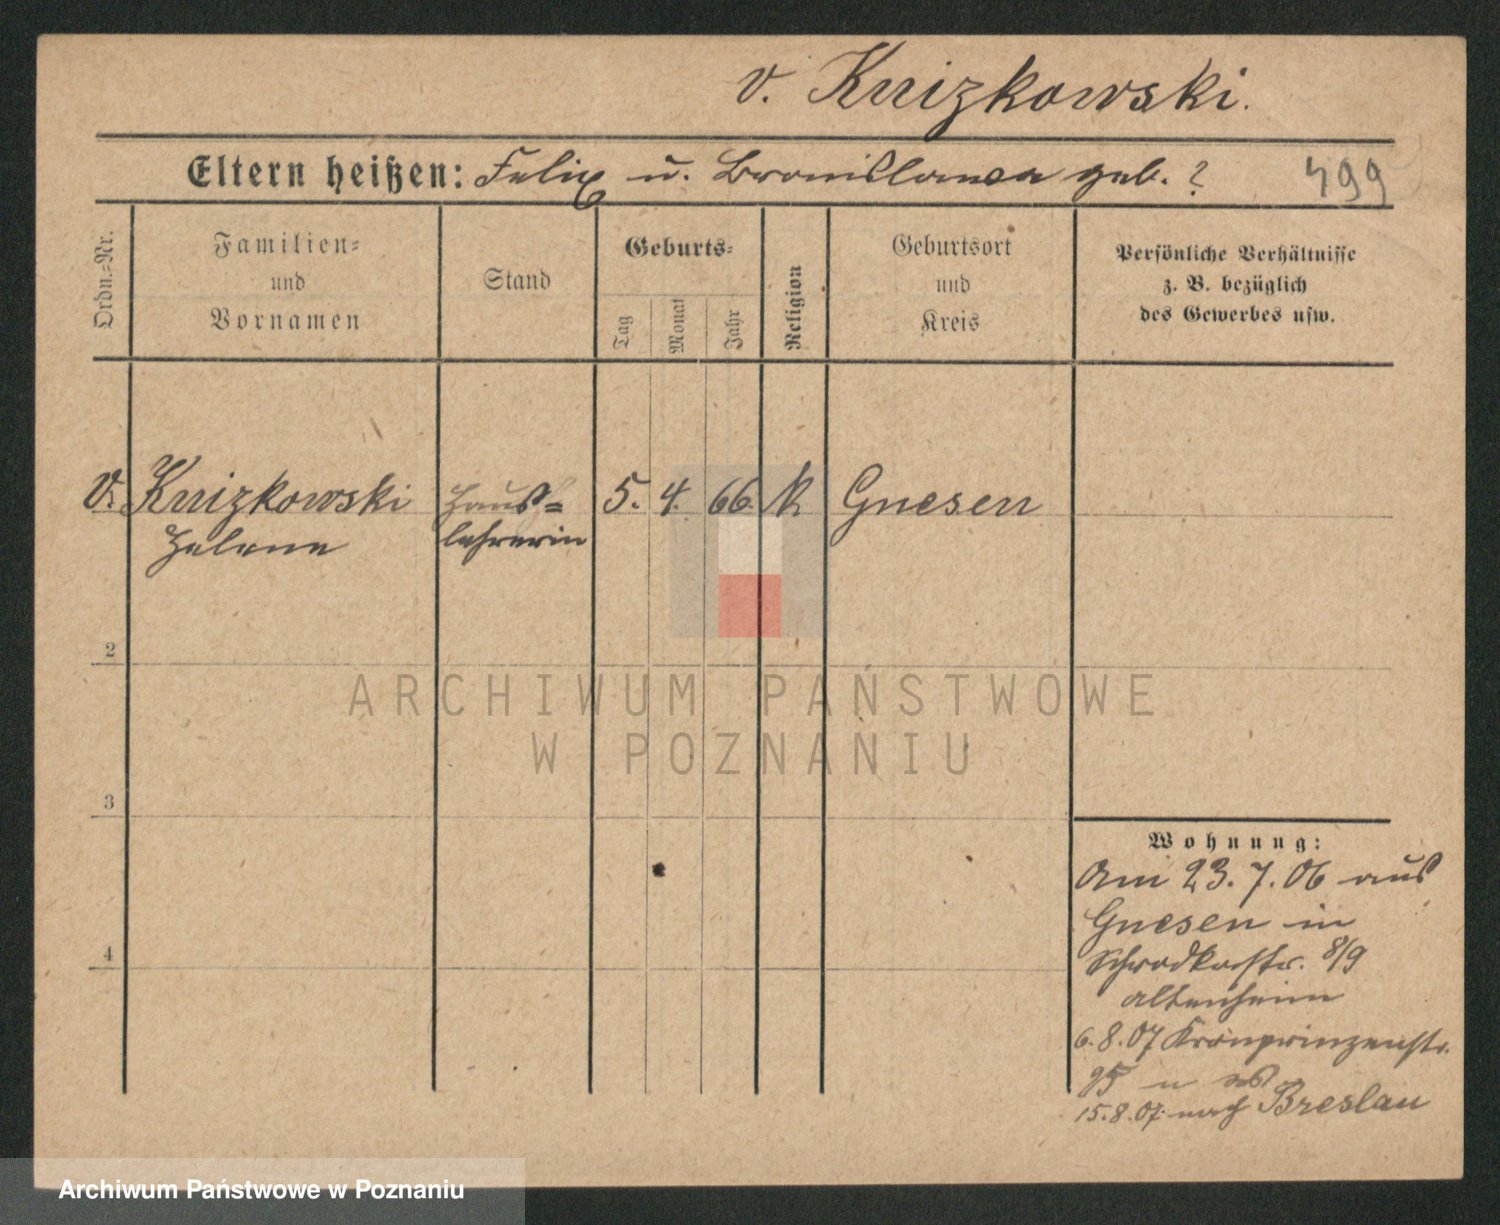 v. Knizkowski.
Eltern heißen: Felix u. Bronislawa geb. ?
499
Ordn.-Nr.
Familien-
und
Vornamen
Stand
Geburts-
Tag
Monat
Jahr
Religion
Geburtsort
und
Kreis
Persönliche Verhältnisse
z. B. bezüglich
des Gewerbes usw.
v. Knizkowski Haus= 5. 4. 66. k Gnesen
Helene lehrerin
2
ARCHIWUM PAŃSTWOWE
W POZNANIU
3
4
Wohnung:
Am 23.7.06 aus
Gnesen in
Schrodkastr. 8/9
Altenheim
6.8.07 Kronprinzenstr.
95
15.8.07 nach Breslau
Archiwum Państwowe w Poznaniu